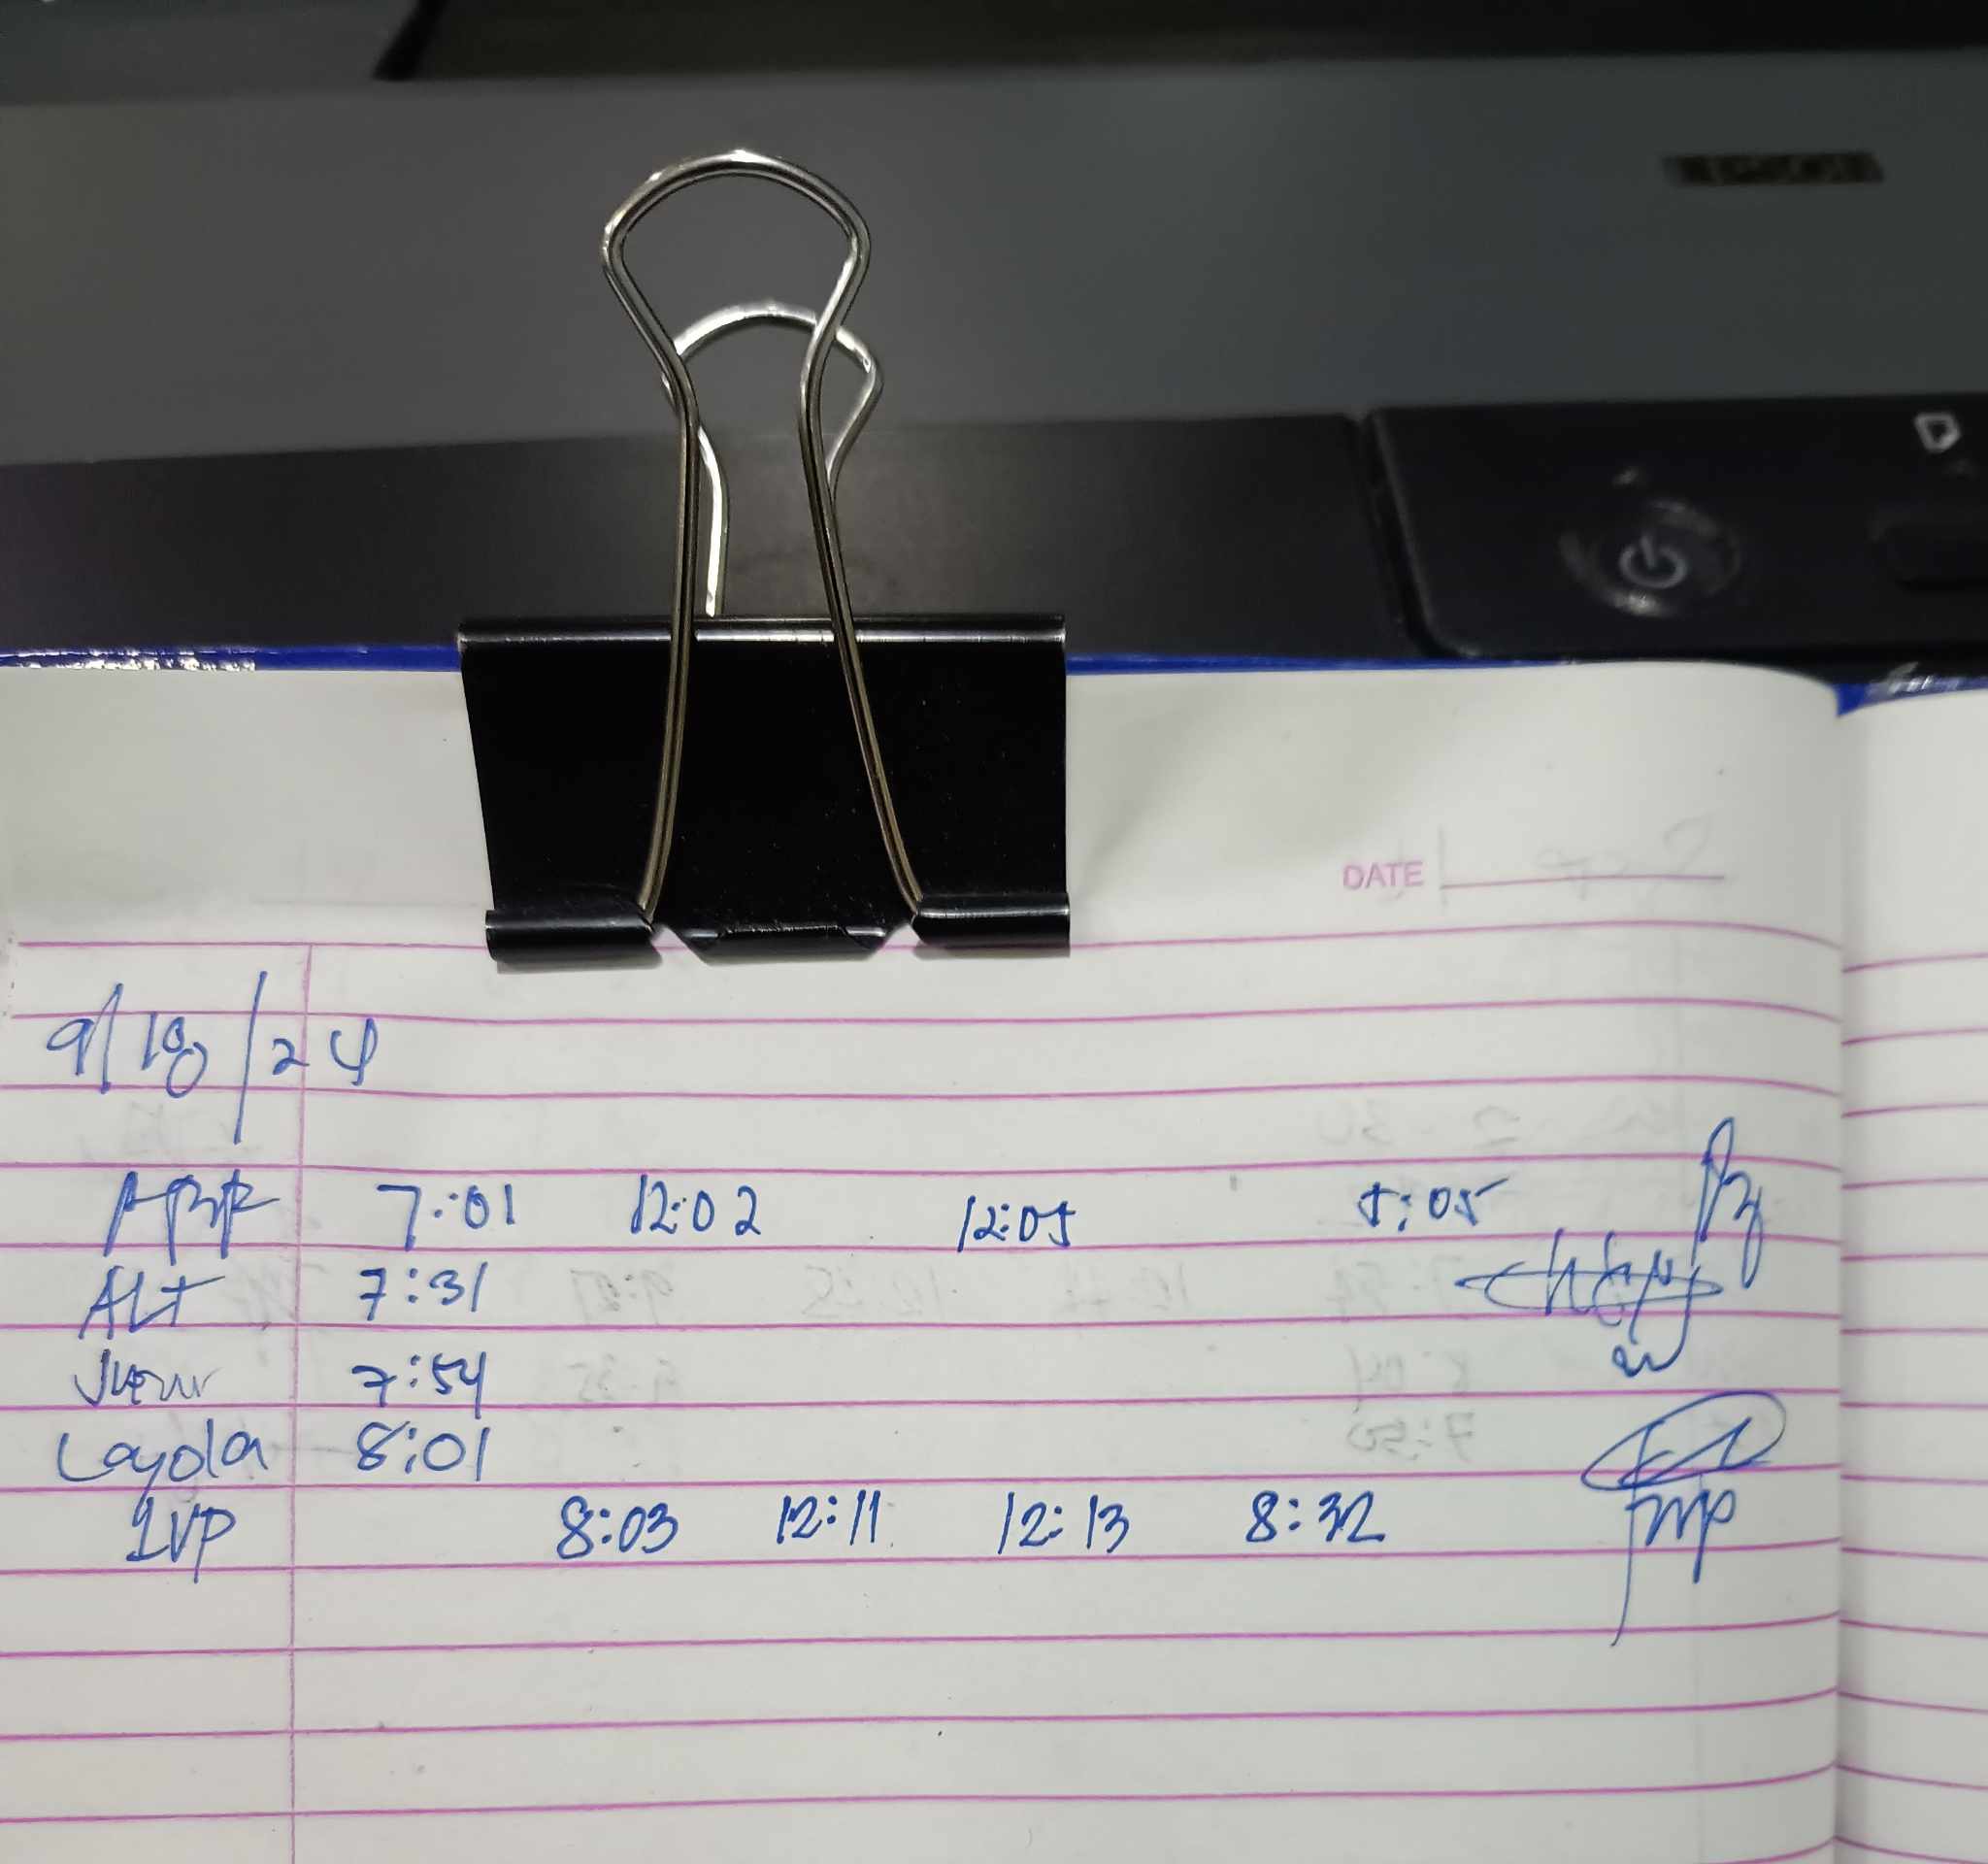 DATE
9/18/24
7:01 12:02 12:05 5:05
ALT 7:31
7:54
Loyola 8:01
IVP 8:03 12:11 12:13 8:32